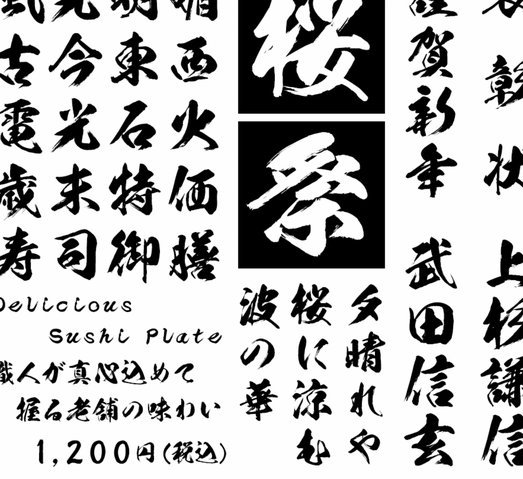 表彰状
上杉謙信
謹賀新年
武田信玄
桜
祭
夕晴れや
桜に涼む
波の華
風光明媚
古今東西
電光石火
歳末特価
寿司御膳
Delicious
Sushi Plate
職人が真心込めて
握る老舗の味わい
1,200円(税込)